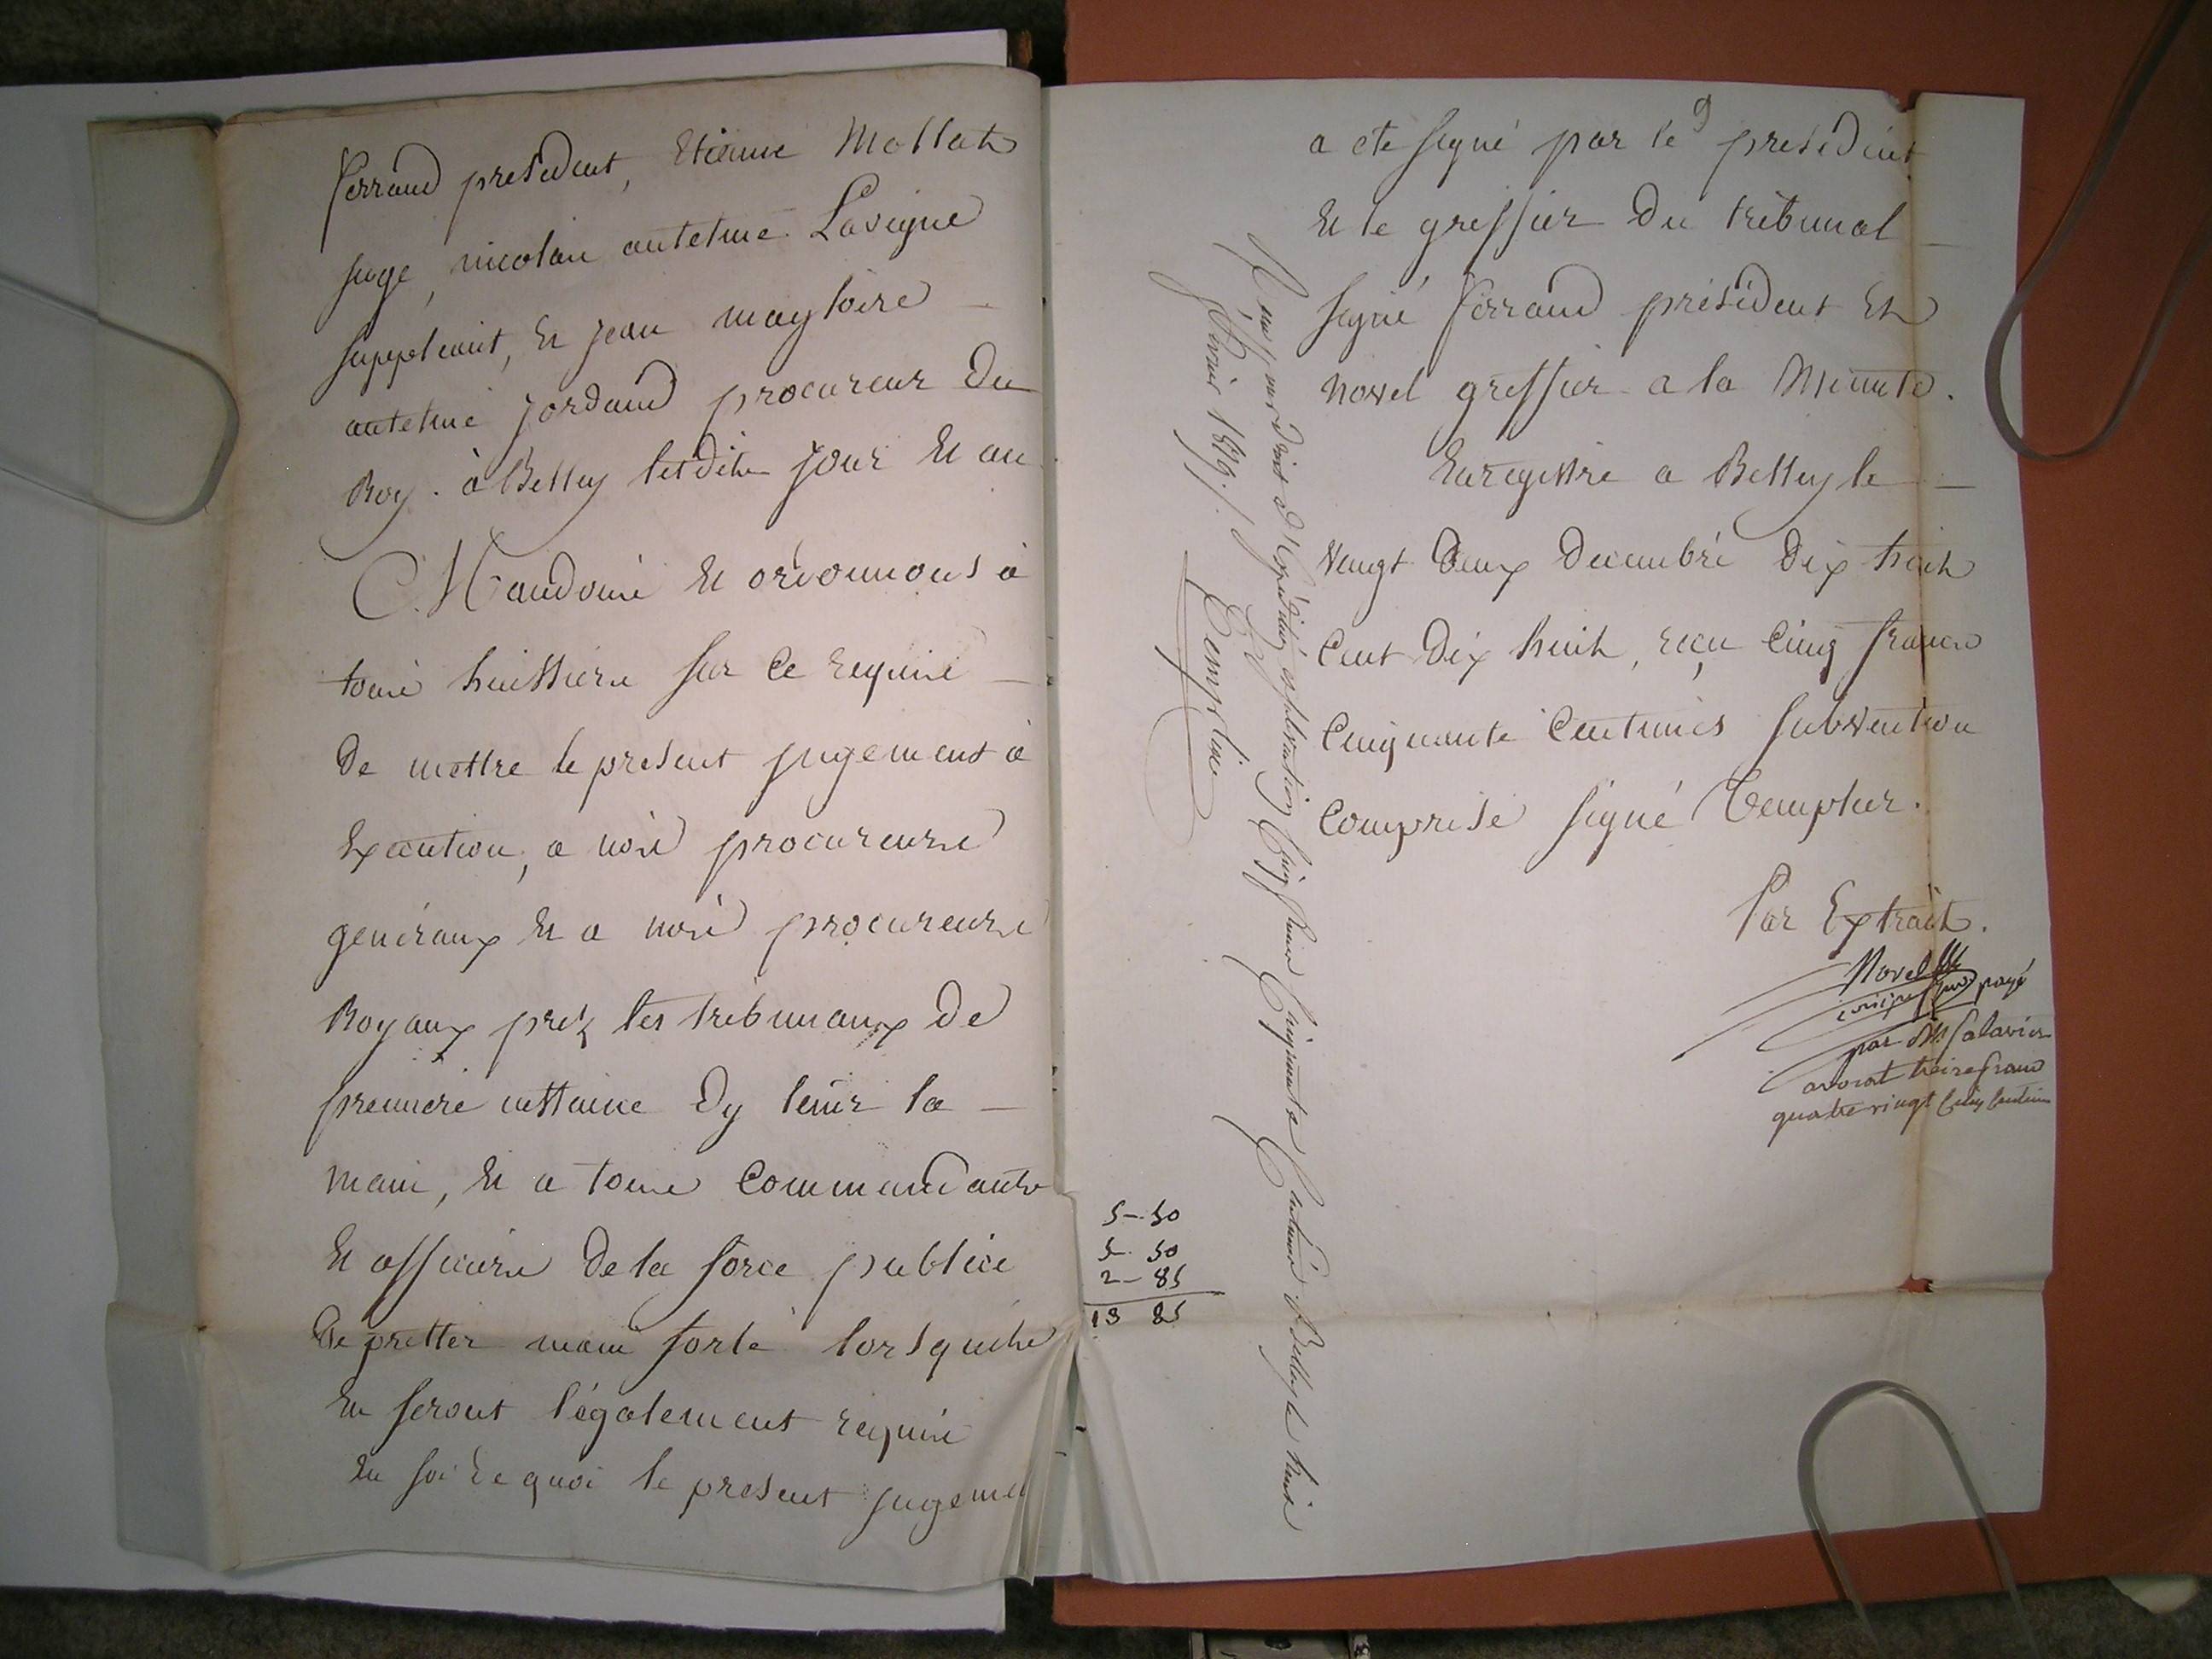 ferrand president, Etienne Mollet
juge, nicolas antelme Lavigne
suppleant, et jean magloire
antelme jordand procureur du
Roy. à Belley lesdits jour et an
Mandons et ordonnons à
tous huissiers sur ce requis
de mettre le present jugement à
Execution, a nos procureurs
generaux et a nos procureurs
Royaux prez les tribunaux de
premiere instance d'y tenir la
main, et a tous commandants
et officiers de la force publice
de pretter main forte lorsquils
en seront légalement requis
en foi de quoi le present jugemet
a ete signé par le president
et le greffier du tribunal
signé ferrand président et
novel greffier a la minute.
Enregistre a Belley le
vingt deux decembre dix huit
cent dix huit, reçu cinq francs
cinquante centimes subvention
comprise signé Templier.
Par Extrait.
Novel
payé
par Mr Salavier
avocat treize franc
quatre vingt cinq centimes
subvention Cinq francs Cinquante Centimes Belley le huit
fevrier 1819. Templier
5-50
5-50
2-85
13 85